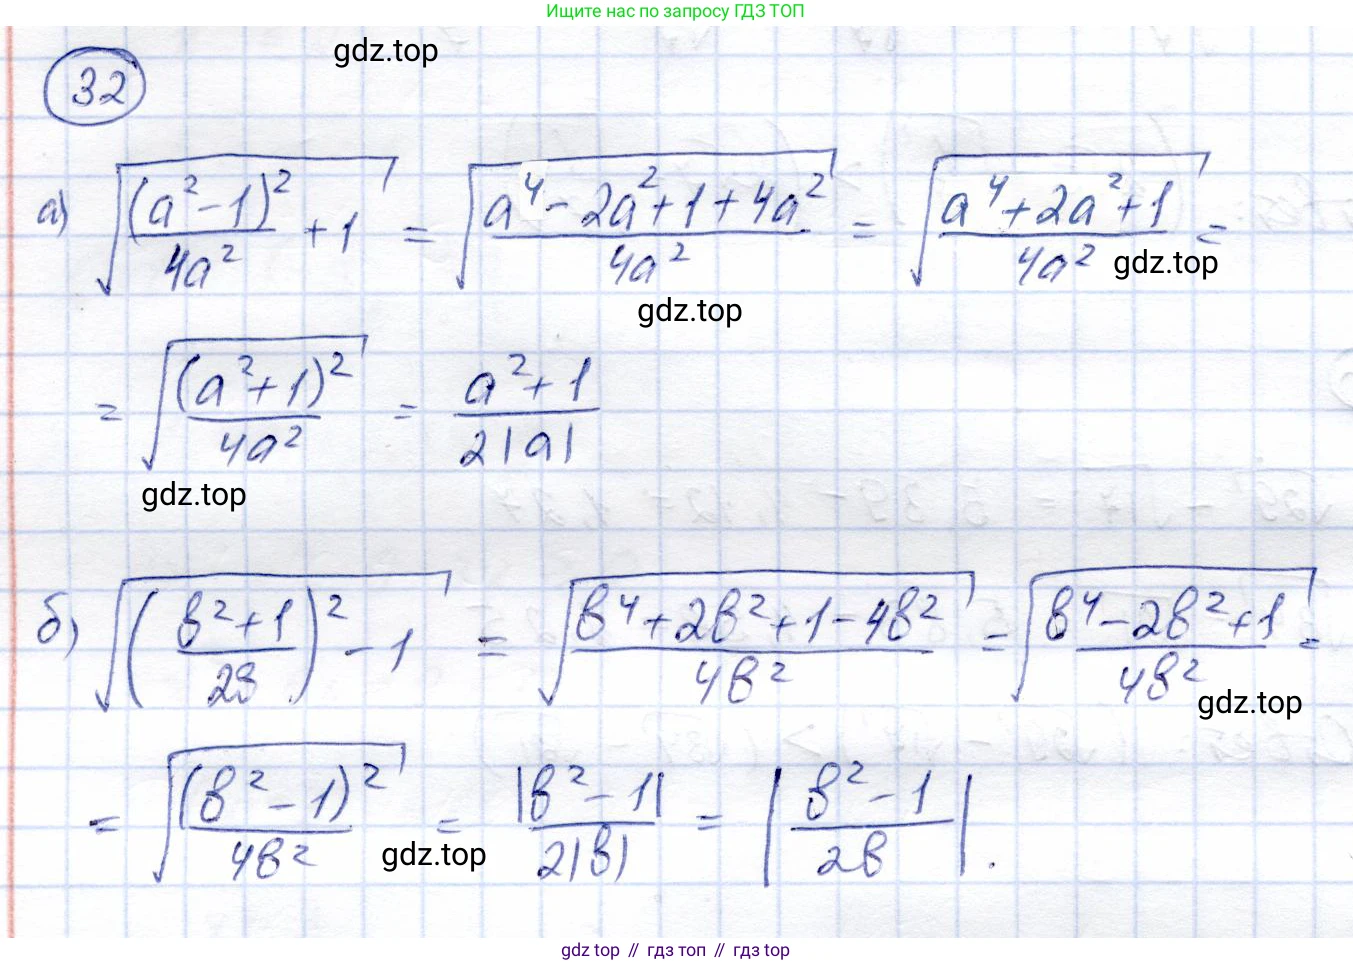 Ищите нас по запросу ГДЗ ТОП
gdz.top
32
а) √((a² - 1)² / 4a² + 1) = √((a⁴ - 2a² + 1 + 4a²) / 4a²) = √((a⁴ + 2a² + 1) / 4a²) =
gdz.top
gdz.top
= √((a² + 1)² / 4a²) = (a² + 1) / 2|a|
gdz.top
б) √(((b² + 1) / 2b)² - 1) = √((b⁴ + 2b² + 1 - 4b²) / 4b²) = √((b⁴ - 2b² + 1) / 4b²) =
gdz.top
= √((b² - 1)² / 4b²) = |b² - 1| / 2|b| = |(b² - 1) / 2b|.
gdz.top
gdz top // гдз топ // gdz top